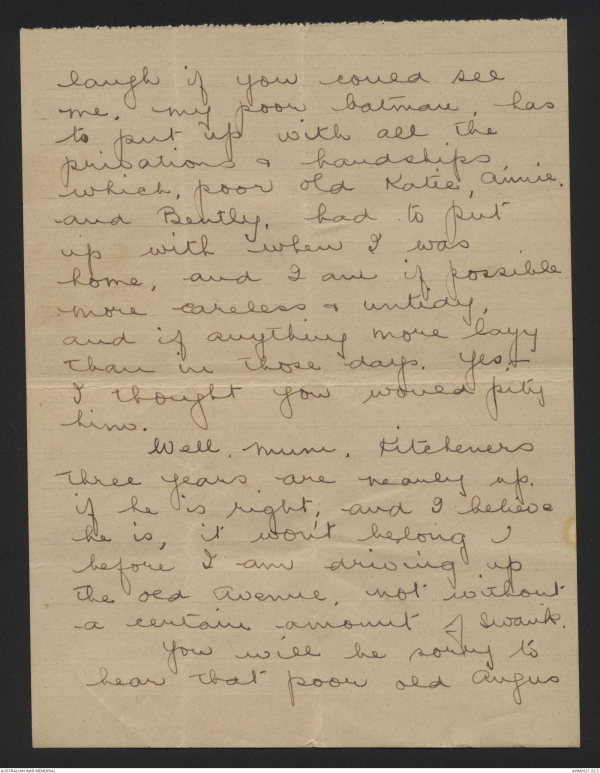 laugh if you could see
me. my poor batman, has
to put up with all the
privations & handships,
which, poor old Katie, Annie,
and Bently, had to put
up with when I was
home, and I am if possible
more careless & untidy,
and if anything more lazy
than in those days. Yes,
I thought you would pity
him.
Well, Mum, Kitcheners
three years are nearly up.
if he is right, and I believe
he is, it won't be long
before I am driving up
the old Avenue, not without
a certain amount of Swank.
You will be sorry to
hear that poor old Angus
AUSTRALIAN WAR MEMORIAL